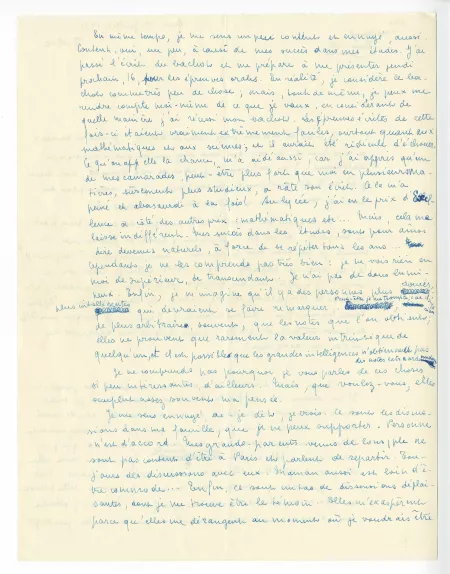 En même temps, je me sens un peu contente et ennuyée, aussi.
Contente, oui, un peu, à cause de mes succès dans mes études. J'ai
passé l'écrit du bachot et me prépare à me présenter jeudi
prochain, 16, pour les épreuves orales. En réalité, je considère ce ba-
chot comme très peu de chose, mais, tout de même, je peux me
rendre compte moi-même de ce que je vaux, en considérant de
quelle manière j'ai réussi mon bachot. Les épreuves écrites de cette
fois-ci étaient vraiment extrêmement faciles, surtout quant aux
mathématiques et aux sciences; et il aurait été ridicule d'échouer.
Ce qu'on appelle la chance, m'a aidé aussi, car j'ai appris qu'une
de mes camarades, peut-être plus forte que moi en plusieurs ma-
tières, sûrement plus studieuse, a raté son écrit. Cela m'a
peiné et abasourdi à la fois! Au lycée, j'ai eu le prix d'Excel-
lence à côté des autres prix: mathématiques etc... Mais, cela me
laisse indifférente. Mes succès dans les études, sont pour ainsi
dire devenus naturels, à force de se répéter tous les ans...
Cependant, je ne les comprends pas très bien: je ne vois rien en
moi de supérieur, de transcendant. Je n'ai pas de dons lumi-
neux. Enfin, je m'imagine qu'il y a des personnes plus douées
plus intelligentes que devraient se faire remarquer. Peut-être je me trompe, car
de plus arbitraire, souvent, que les notes que l'on obtient,
elles ne prouvent que rarement la valeur intrinsèque de
quelqu'un, et il est possible que les grandes intelligences n'obtiennent pas
des notes
Je ne comprends pas pourquoi je vous parle de ces choses
si peu intéressantes, d'ailleurs. Mais, que voulez-vous, elles
remplissent assez souvent ma pensée.
Je me sens ennuyée ai-je dit, je crois. Ce sont les discus-
sions dans ma famille, que je ne peux supporter. Personne
n'est d'accord. Mes grands-parents venus de loin, ne
sont pas contents d'être à Paris et parlent de repartir. Tou-
jours des discussions avec eux. Maman aussi est loin d'ê-
tre commode... Enfin, ce sont un tas de discussions déplai-
santes, dont je me trouve être le témoin. Elles m'exaspèrent
parce qu'elles me dérangent au moment où je voudrais être